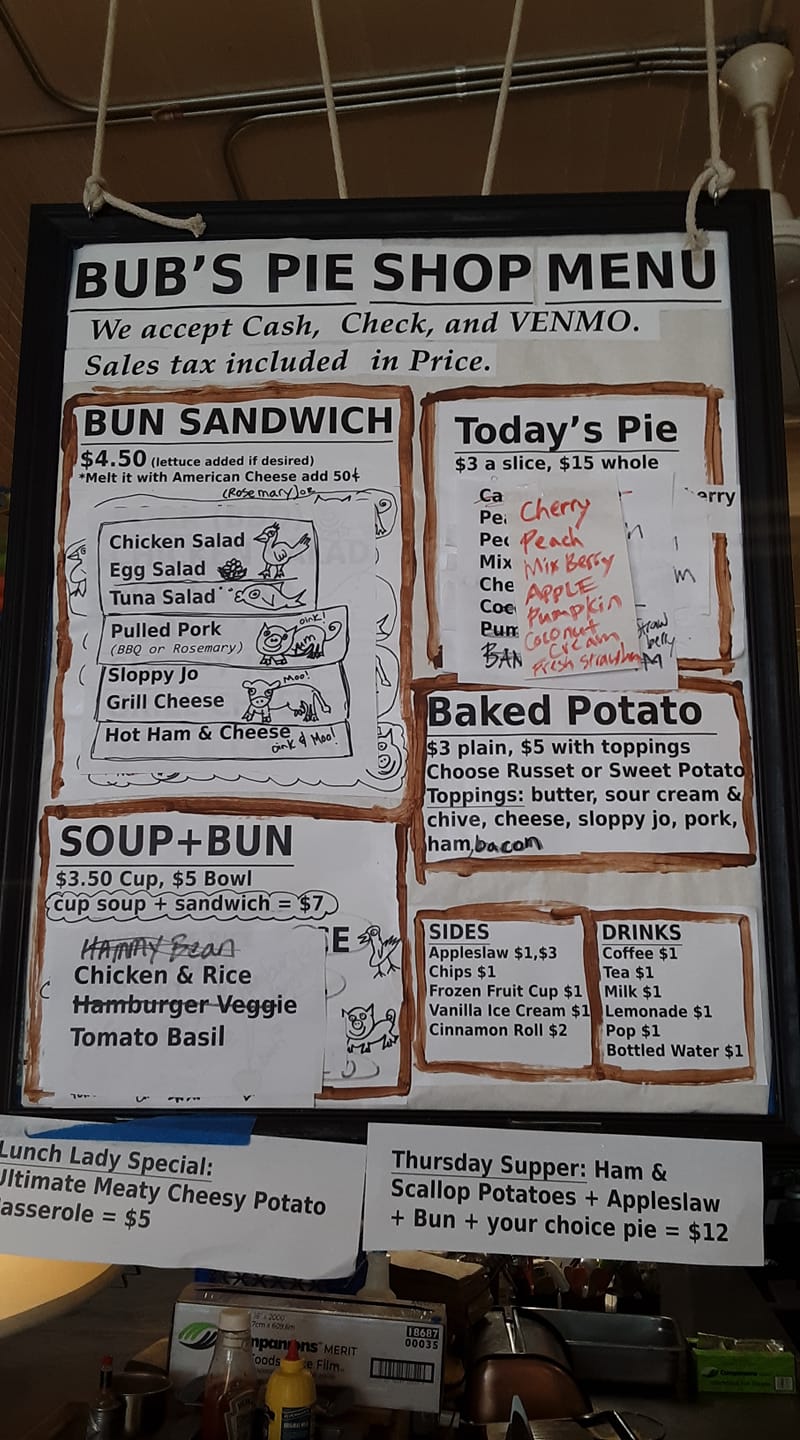 BUB'S PIE SHOP MENU
We accept Cash, Check, and VENMO.
Sales tax included in Price.
BUN SANDWICH
$4.50 (lettuce added if desired)
*Melt it with American Cheese add 50¢
(Rosemary)or
Chicken Salad
Egg Salad
Tuna Salad
Pulled Pork
oink!
(BBQ or Rosemary)
Sloppy Jo
Moo!
Grill Cheese
Hot Ham & Cheese
oink & Moo!
SOUP+BUN
$3.50 Cup, $5 Bowl
cup soup + sandwich = $7
HAMMY Bean
Chicken & Rice
Hamburger Veggie
Tomato Basil
Today's Pie
$3 a slice, $15 whole
Cherry
Peach
Mix Berry
APPLE
Pumpkin
Coconut
Cream
Baked Potato
$3 plain, $5 with toppings
Choose Russet or Sweet Potato
Toppings: butter, sour cream &
chive, cheese, sloppy jo, pork,
ham, bacon
SIDES
Appleslaw $1,$3
Chips $1
Frozen Fruit Cup $1
Vanilla Ice Cream $1
Cinnamon Roll $2
DRINKS
Coffee $1
Tea $1
Milk $1
Lemonade $1
Pop $1
Bottled Water $1
Lunch Lady Special:
Ultimate Meaty Cheesy Potato
asserole = $5
Thursday Supper: Ham &
Scallop Potatoes + Appleslaw
+ Bun + your choice pie = $12
MERIT
18687
00035